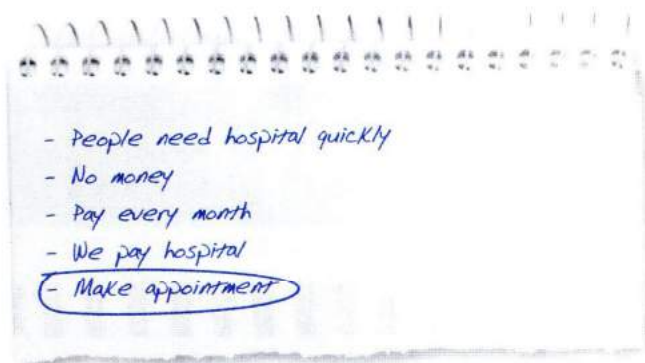 - People need hospital quickly
- No money
- Pay every month
- We pay hospital
- Make appointment